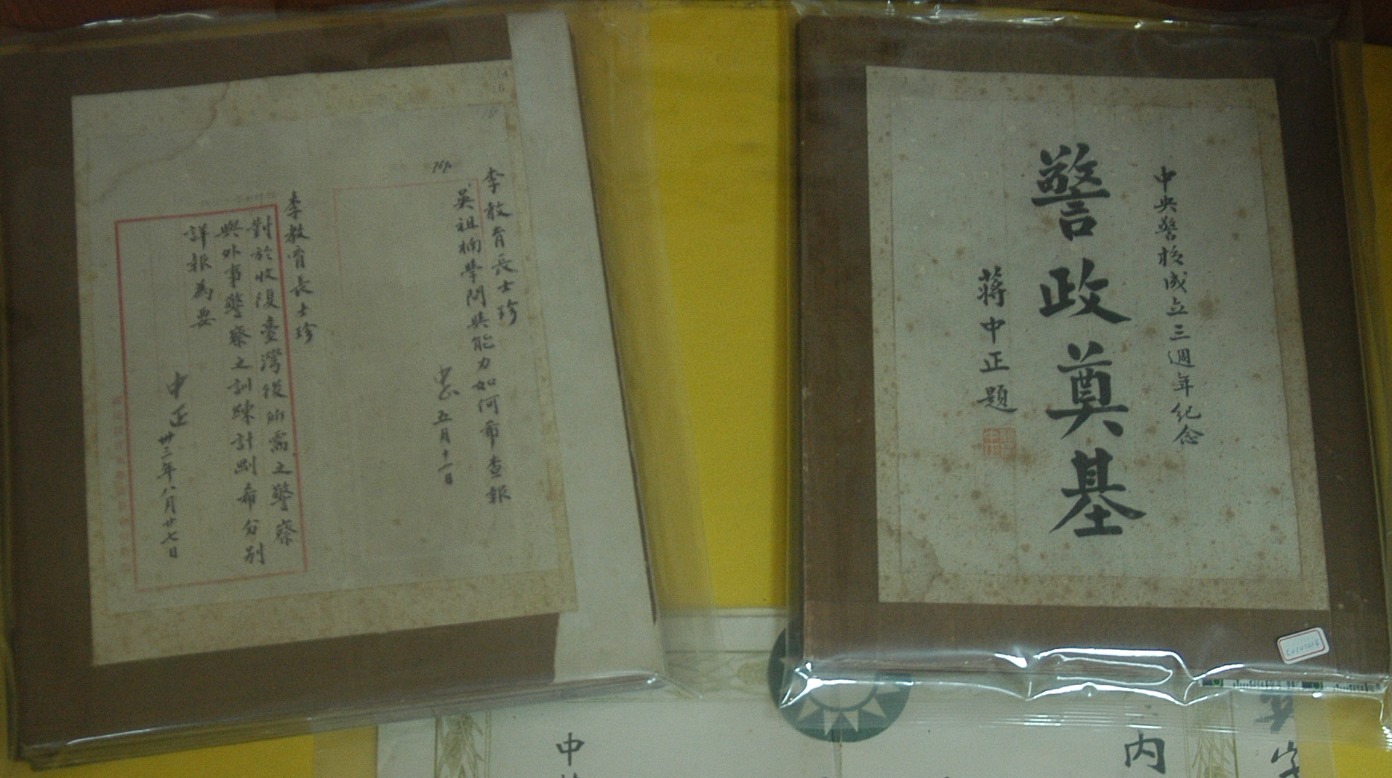 中央警校成立三週年紀念
警政奠基
蔣中正題
李教育長士珍
吳祖楠學問與能力如何希查報
中正 五月十一日
李教育長士珍
對於收復臺灣後所需之警察
與外事警察之訓練計劃希分別
詳報為要
中正 卅三年八月廿七日
內
中
字